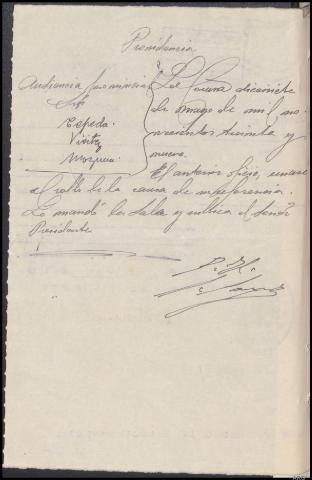 Providencia
Audiencia provincial
Srs
Cepeda.
Vieitez
Mosquera.
La Coruña diecisiete
de mayo de mil no-
vecientos treinta y
nueve.
El anterior oficio, únase
al rollo de la causa de su referencia.
Lo mandó la Sala y rubrica el Señor
Presidente